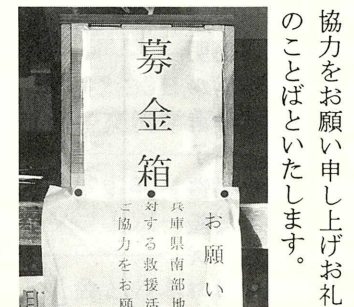 協力をお願い申し上げお礼
のことばといたします。
募金箱
お願い
兵庫県南部地
対する救援活
ご協力をお願